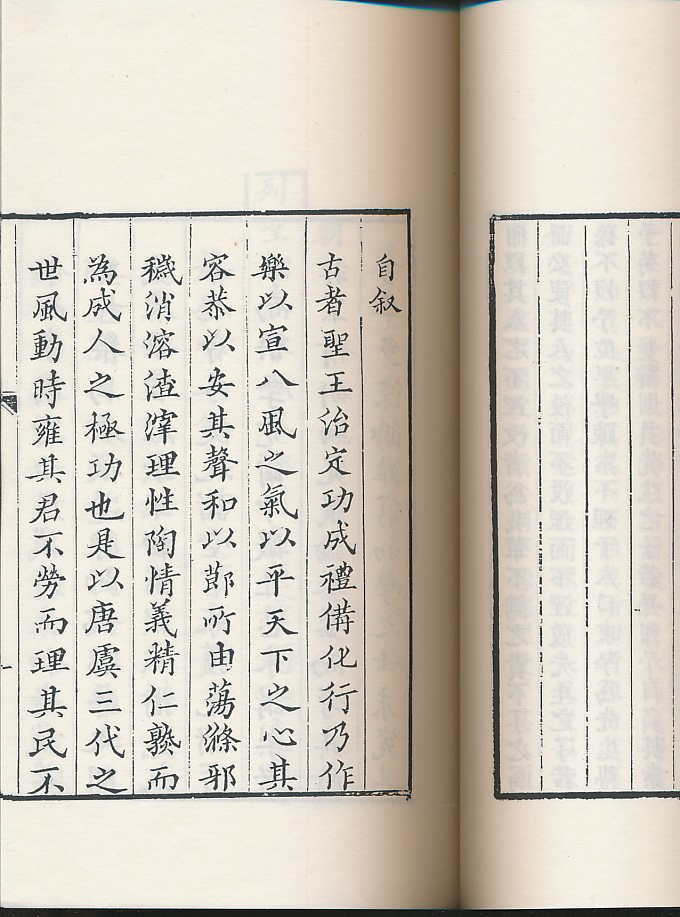 自叙
古者聖王治定功成禮俻化行乃作
樂以宣八風之氣以平天下之心其
容恭以安其聲和以莭所由蕩滌邪
穢消溶渣滓理性陶情義精仁熟而
為成人之極功也是以唐虞三代之
世風動時雍其君不勞而理其民不